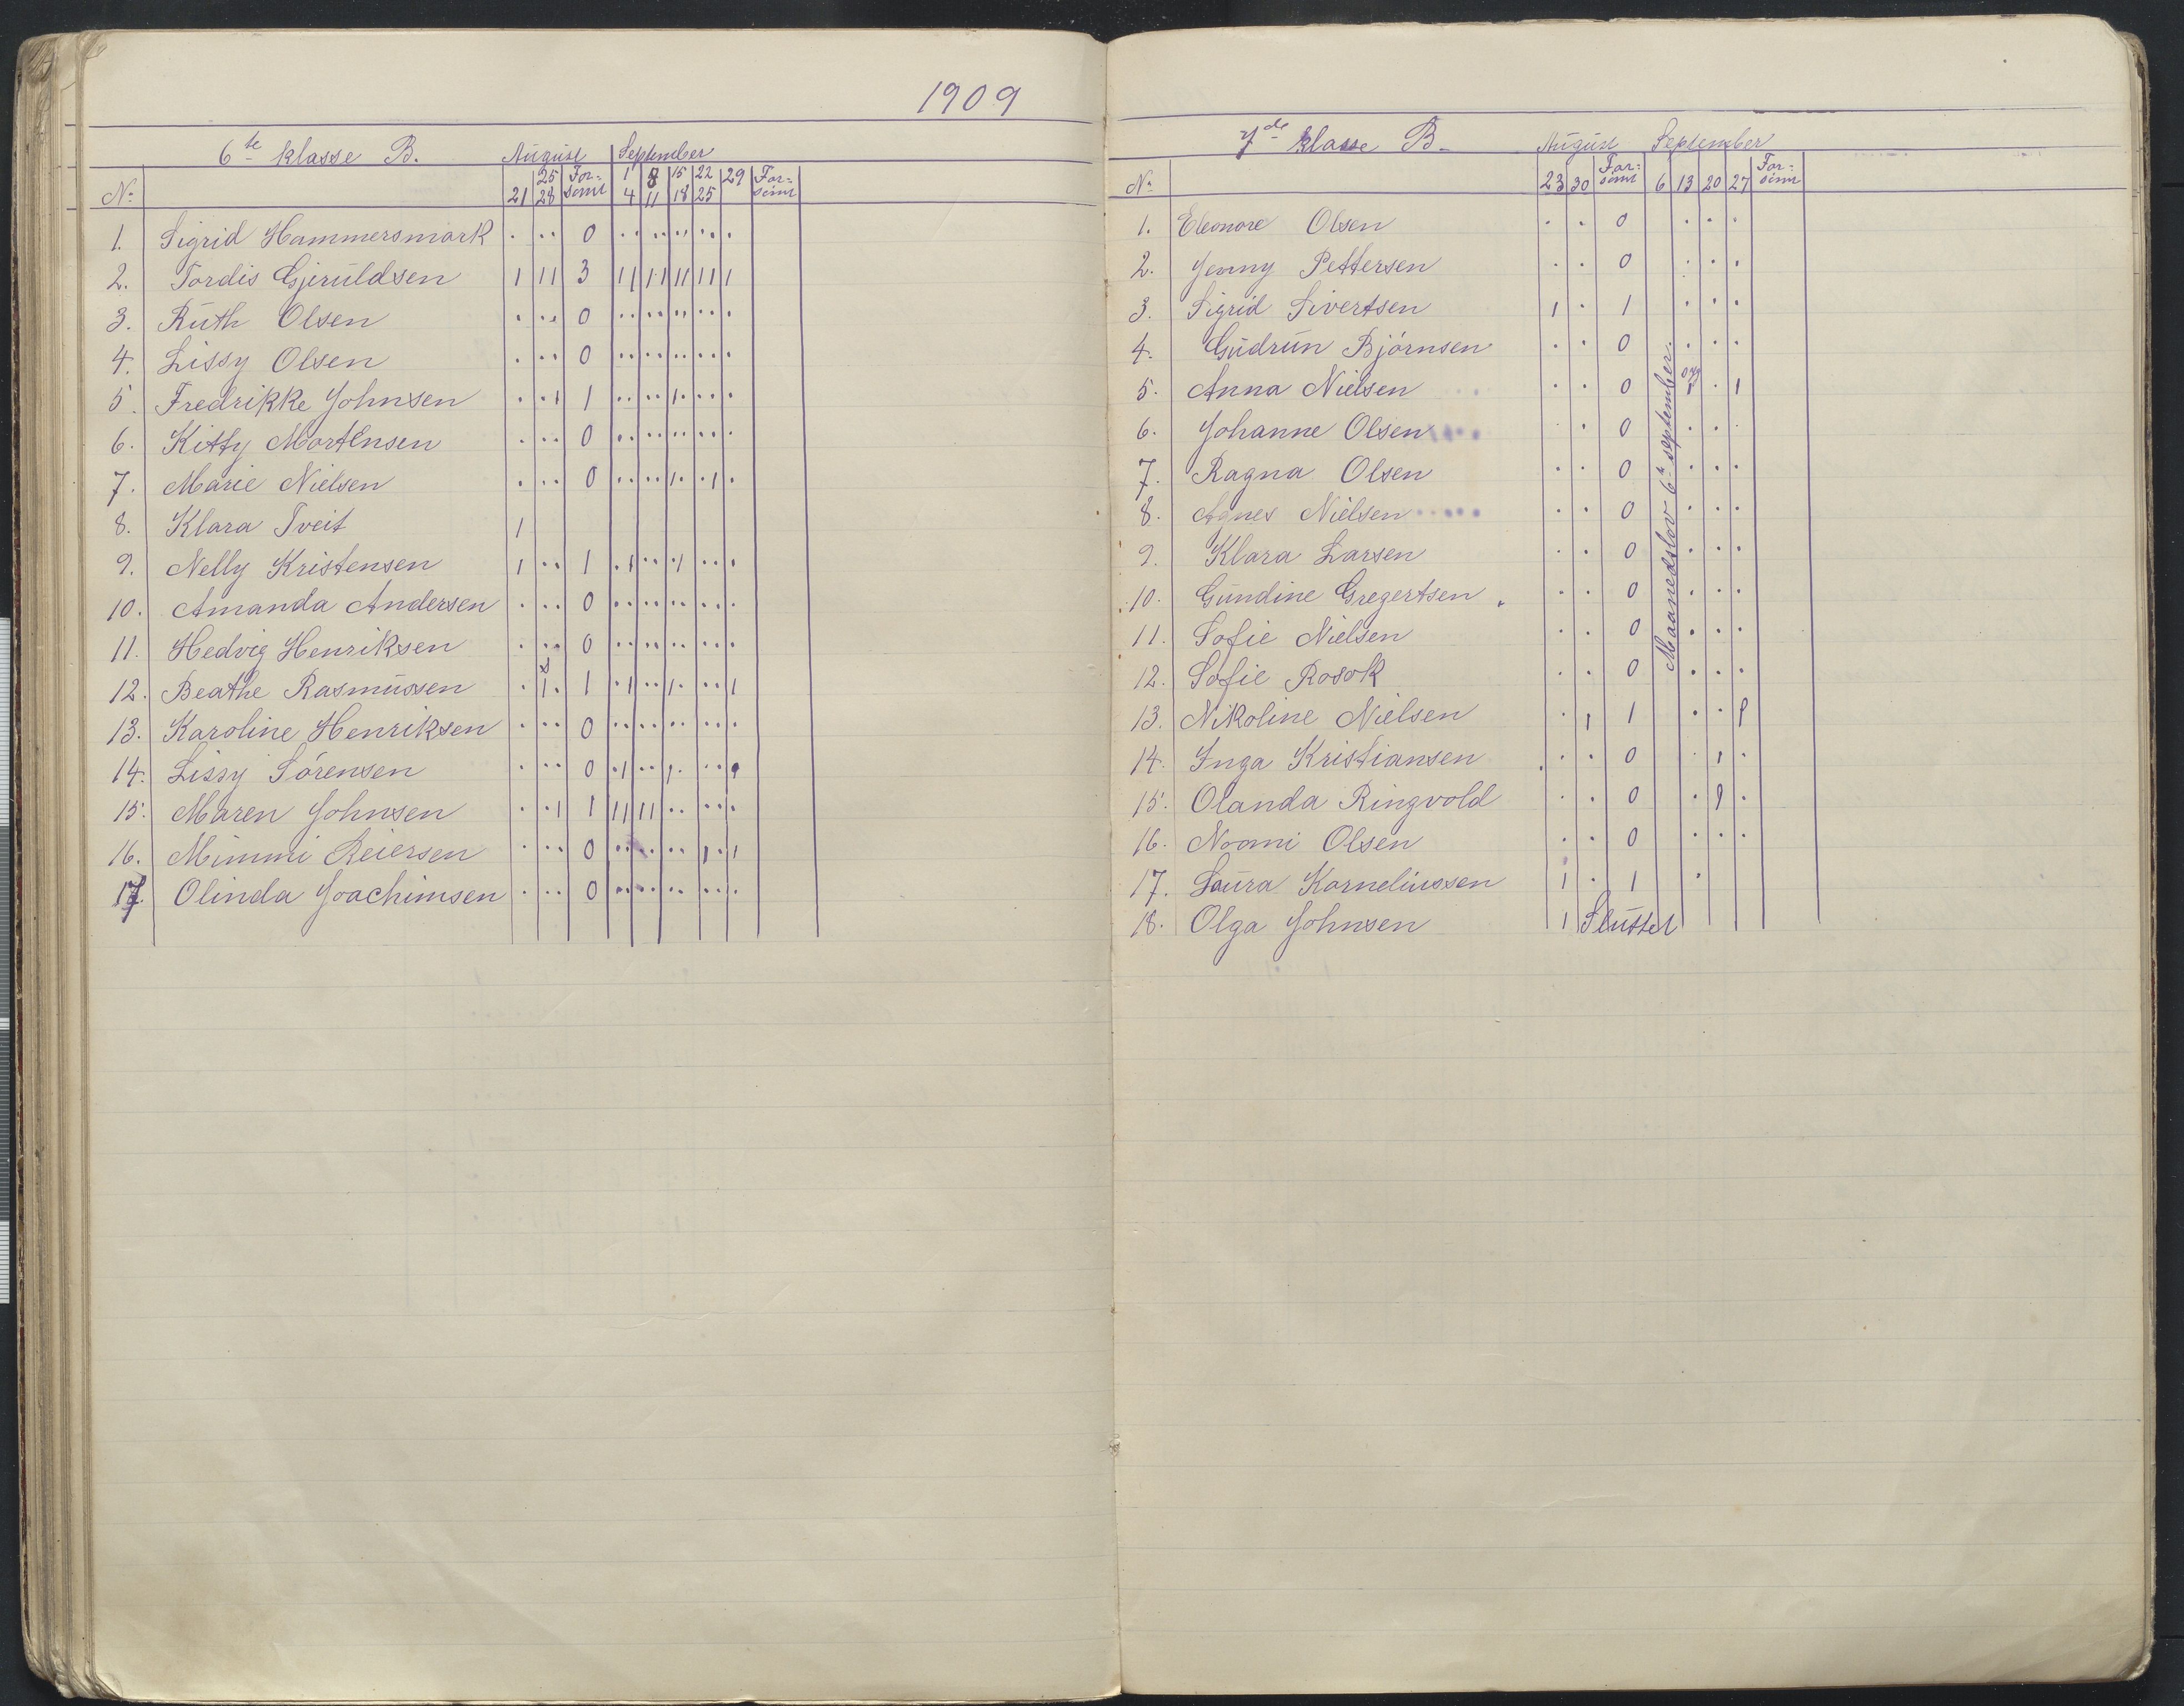 1909
6te klasse B. August September
No 21 25 28 For-sømt 1 4 8 11 15 18 22 25 29 For-sømt
1. Sigrid Hammersmark . .. 0 .. .. .. .. .
2. Tordis Gjeruldsen 1 11 3 11 11 11 11 1
3. Ruth Olsen . .. 0 .. .. .. .. .
4. Lissy Olsen . .. 0 .. .. .. .. .
5. Fredrikke Johnsen . .1 1 .. .. 1. .. .
6. Kitty Mortensen . .. 0 .. .. .. .. .
7. Marie Nielsen . .. 0 .. .. 1. .1 .
8. Klara Tveit 1
9. Nelly Kristensen 1 .. 1 .1 .. .1 .. .
10. Amanda Andersen . .. 0 .. .. .. .. .
11. Hedvig Henriksen . .. 0 .. .. .. .. .
12. Beathe Rasmussen . 1. 1 .1 .. 1. .. 1
13. Karoline Henriksen . .. 0 .. .. .. .. .
14. Lissy Sørensen . .. 0 .1 .. 1. .. .
15. Maren Johnsen . .1 1 11 11 .. .. .
16. Mimmi Reiersen . .. 0 .. .. .. 1. 1
17. Olinda Joachimsen . .. 0 .. .. .. .. .
7de klasse B. August September
No 23 30 For-sømt 6 13 20 27 For-sømt
1. Eleonore Olsen . . 0 . . .
2. Jenny Pettersen . . 0 . . .
3. Sigrid Sivertsen 1 . 1 . . .
4. Gudrun Bjørnsen . . 0 . . .
5. Anna Nielsen . . 0 . 1
6. Johanne Olsen . . 0 . . .
7. Ragna Olsen . . 0 . . .
8. Agnes Nielsen . . 0 . . .
9. Klara Larsen . . 0 . . .
10. Gundine Gregertsen . . 0 . . .
11. Sofie Nielsen . . 0 . . .
12. Sofie Rosok . . 0 . . .
13. Nikoline Nielsen . 1 1 . . 1
14. Inga Kristiansen . . 0 . 1 .
15. Olanda Ringvold . . 0 . 1 .
16. Noomi Olsen . . 0 . . .
17. Laura Korneliussen 1 . 1 .
18. Olga Johnsen 1 Sluttet
Maanedslov 6te september.